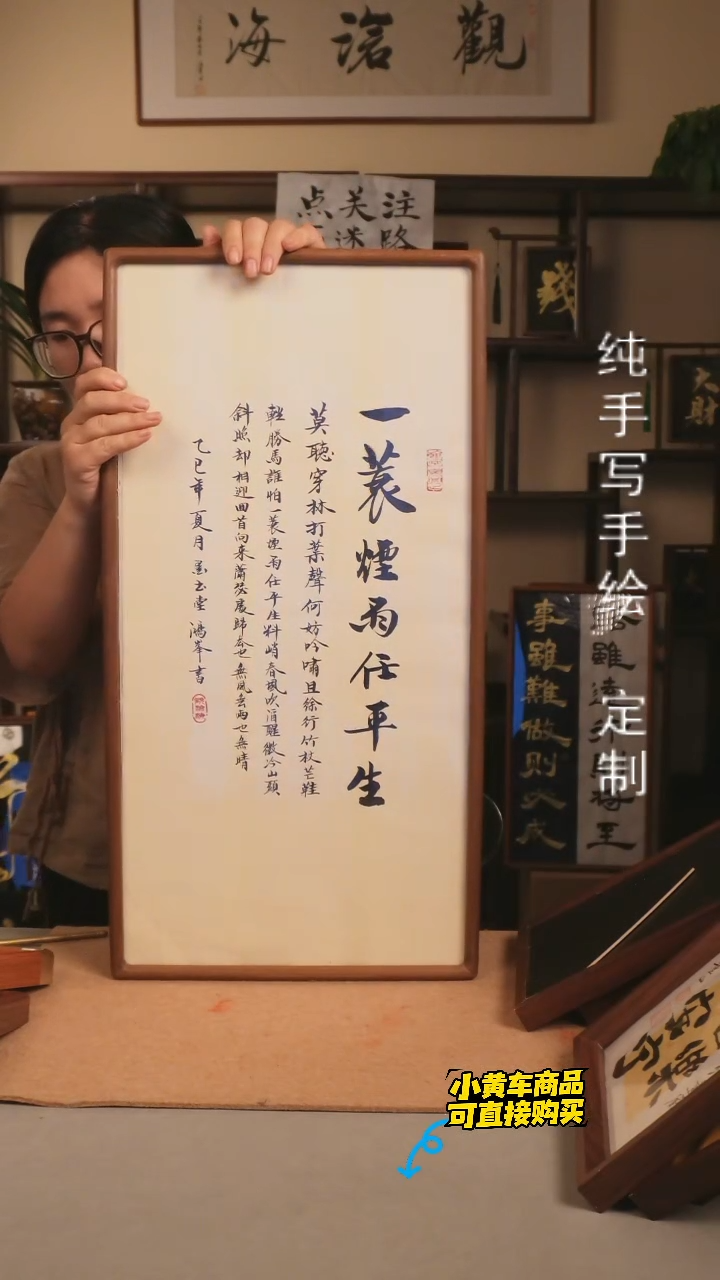 觀滄海
点关注
不迷路
一蓑煙雨任平生
莫聽穿林打葉聲何妨吟嘯且徐行竹杖芒鞋
輕勝馬誰怕一蓑煙雨任平生料峭春風吹酒醒微冷山頭
斜照却相迎回首向来蕭瑟處歸去也無風雨也無晴
乙巳年夏月墨玉堂鴻峯書
纯手写手绘 定制
大財
事雖難做則必成
路雖遠行則將至
小黄车商品
可直接购买